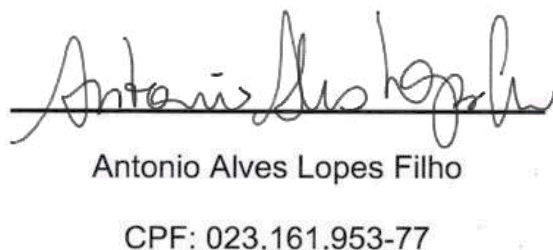 Antonio Alves Lopes Filho
Antonio Alves Lopes Filho
CPF: 023.161.953-77